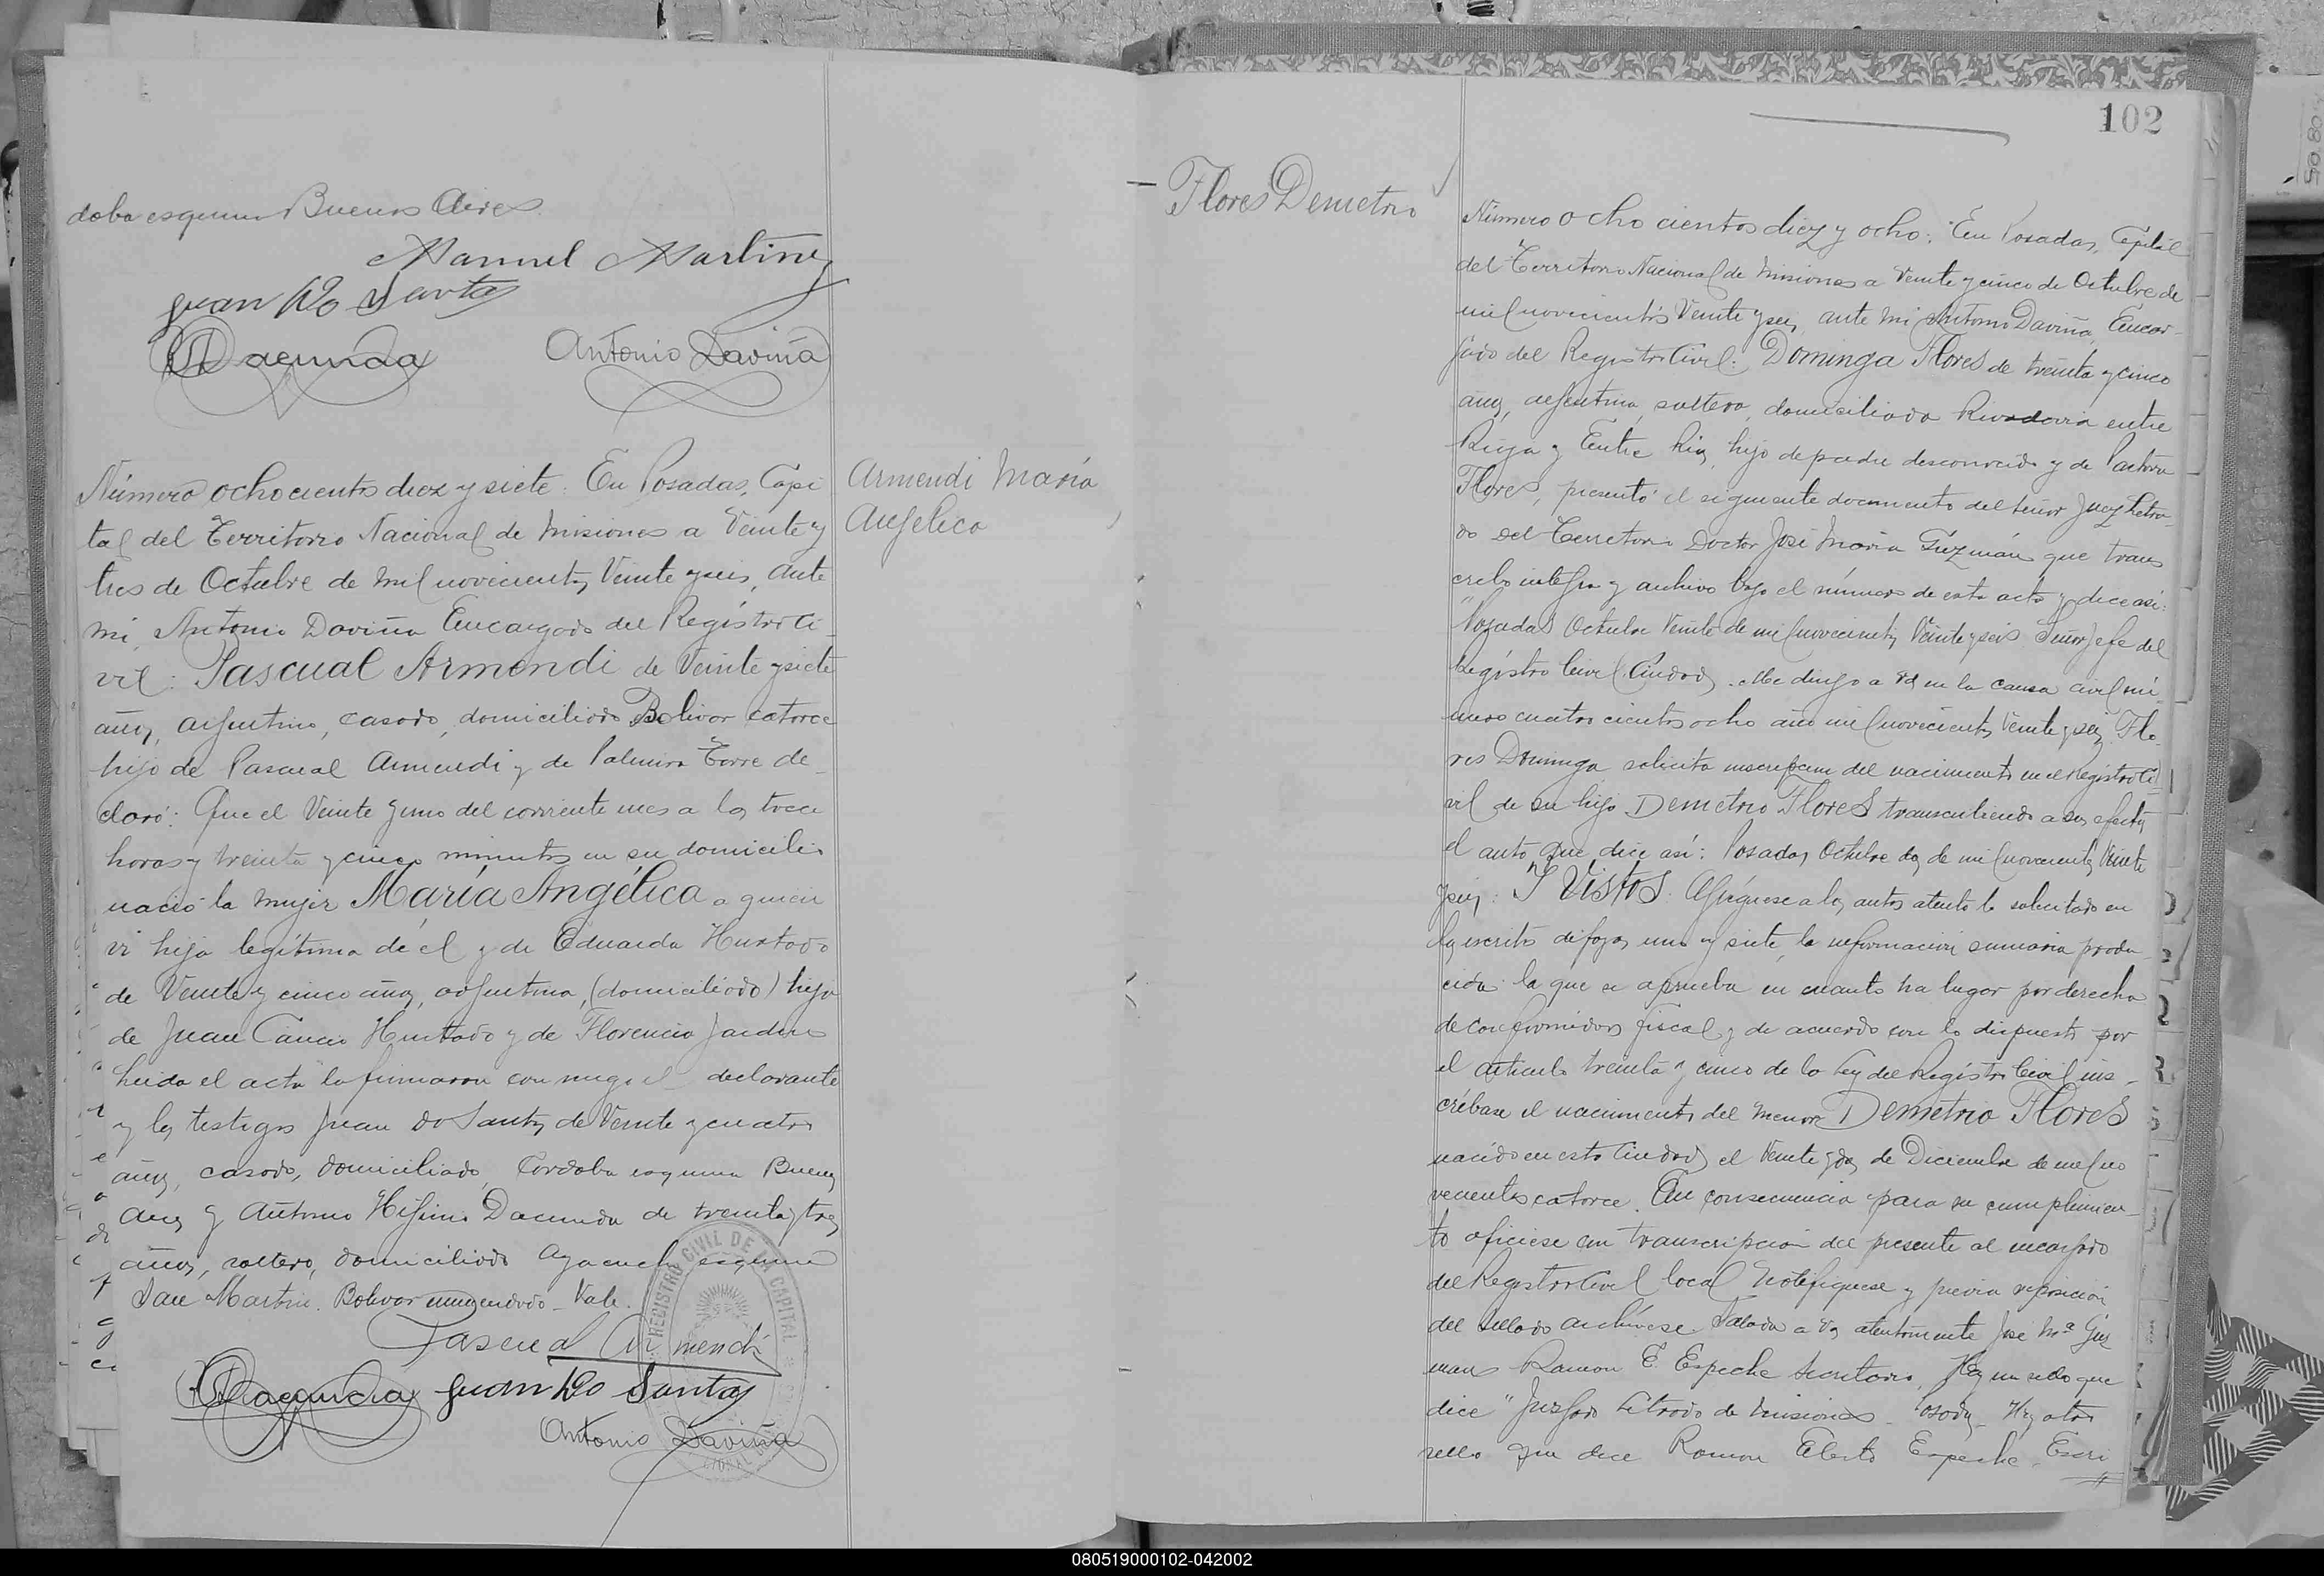 doba esquina Buenos Aires.
Manuel Martinez
Juan Do Santos
Antonio Daviña
Número ochocientos diez y siete: En Posadas, Capi
tal del Territorio Nacional de Misiones a Veinte y
tres de Octubre de mil novecientos Veinte y seis, ante
mi, Antonio Daviña Encargado del Registro Ci-
vil: Pascual Armendi de Veinte y siete
años, argentino, casado, domiciliado Bolivar catorce
hijo de Pascual Armendi y de Palmira Torre de-
claró: Que el Veinte y uno del corriente mes a las trece
horas y treinta y cinco minutos en su domicilio
nació la mujer María Angélica a quien
vi hija legítima de él y de Eduarda Hurtado
de Veinte y cinco años, argentina, (domiciliado) hija
de Juan Cancio Hurtado y de Florencia Jardin
Leida el acta la firmaron conmigo el declarante
y los testigos Juan do Santos de Veinte y cuatro
años, casado, domiciliado Córdoba esquina Buenos
Aires y Antonio Higinio Dacunda de treinta y tres
años, soltero, domiciliado Ayacucho esquina
San Martin. Bolivar enmendado - Vale.
Pascual Armendi
Juan Do Santos
Antonio Daviña
REGISTRO CIVIL DE LA CAPITAL
Armendi María
Angélica
102
Flores Demetrio
Número ochocientos diez y ocho: En Posadas, Capital
del Territorio Nacional de Misiones a Veinte y cinco de Octubre de
mil novecientos Veinte y seis, ante mi Antonio Daviña, Encar-
gado del Registro Civil: Dominga Flores de treinta y cinco
años, argentina, soltera, domiciliada Rivadavia entre
Rioja y Entre Rios, hija de padre desconocido y de Pastora
Flores, presentó el siguiente documento del señor Juez Letra-
do del Territorio Doctor José María Guzmán que trans
cribo integro y archivo bajo el número de esta acta y dice así:
"Posadas Octubre Veinte de mil novecientos Veinte y seis. Señor Jefe del
Registro Civil. Ciudad. Me dirijo a Vd en la causa civil nú
mero cuatrocientos ocho año mil novecientos Veinte y seis. Flo-
res Dominga solicita inscripcion del nacimiento en el Registro Ci-
vil de su hijo Demetrio Flores transcribiendo a sus efectos
el auto que dice así: Posadas, Octubre dos de mil novecientos Veinte
y seis: Y Vistos: Agréguese a los autos atento lo solicitado en
los escritos de fojas uno y siete, la información sumaria produ-
cida la que se aprueba en cuanto ha lugar por derecho
de conformidad fiscal y de acuerdo con lo dispuesto por
el articulo treinta y cinco de la Ley del Registro Civil ins-
críbase el nacimiento del menor Demetrio Flores
nacido en esta Ciudad el Veinte y dos de Diciembre de mil no
vecientos catorce. En consecuencia para su cumplimien-
to ofíciese con transcripción del presente al encargado
del Registro Civil local Notifíquese y previa reposición
del sellado archívese. Saluda a Vd atentamente José Mª Guz
man Ramon E. Espeche Secretario. Hay un sello que
dice "Juzgado Letrado de Misiones - Posadas - Hay otro
sello que dice Ramon Espeche, Escri
080519000102-042002